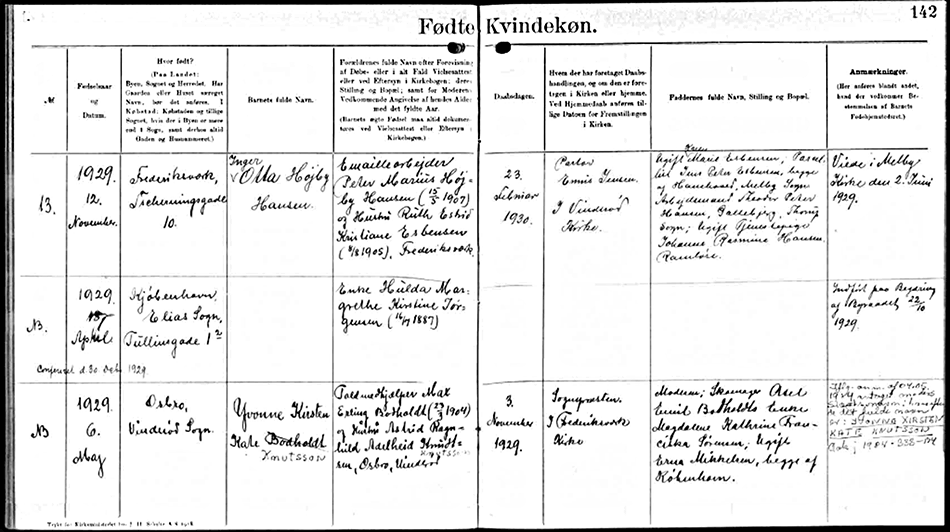 142
Fødte Kvindekøn.
№
Fødselsaar
og
Datum.
Hvor født?
(Paa Landet:
Byen, Sognet og Herredet. Har
Gaarden eller Huset særeget
Navn, bør det anføres. I
Købstad: Købstaden og tillige
Sognet, hvis der i Byen er mere
end 1 Sogn, samt derhos altid
Gaden og Husnummeret.)
Barnets fulde Navn.
Forældrenes fulde Navn efter Forevisning
af Døbe- eller i alt Fald Vielsesattest
eller ved Eftersyn i Kirkebogen; deres
Stilling og Bopæl; samt for Moderens
Vedkommende Angivelse af hendes Alder
med det fyldte Aar.
(Barnets ægte Fødsel maa altid dokumen-
teres ved Vielsesattest eller Eftersyn i
Kirkebogen.)
Daabsdagen.
Hvem der har foretaget Daabs-
handlingen, og om den er fore-
tagen i Kirken eller hjemme.
Ved Hjemmedaab anføres til-
lige Datoen for Fremstillingen
i Kirken.
Faddernes fulde Navn, Stilling og Bopæl.
Anmærkninger.
(Her anføres blandt andet,
hvad der vedkommer Be-
stemmelsen af Barnets
Fødehjemstedsret.)
13.
1929.
12.
November.
Frederiksværk,
Tscherningsgade
10.
Inger
Otta Højby
Hansen.
Emaillearbejder
Peter Marius Høj-
by Hansen (15/5 1907)
og Hustru Ruth Estrid
Kristiane Esbensen
(4/8 1905), Frederiksværk.
23.
Februar
1930.
Pastor
Ennis Jensen.
I Vinderød
Kirke.
Karen
Ugift Maris Esbensen,
list Jens Peter Esbensen, begge
af Hanehoved, Melby Sogn
Arbejdsmand Theodor Peter
Hansen, Gallebjerg,
Sogn; Ugift Tjenestepige
Johanne Rasmine Hansen,
Ramløse.
Viede i Melby
Kirke den 2. Juni
1929.
NB.
1929.
April
Kjøbenhavn,
Elias Sogn,
Tullinsgade 1²
Enke Hulda Mar-
grethe Kirstine Jør-
gensen (16/7 1887)
Indført paa Begæring
af Byraadet 22/10
1929.
Confereret d. 30. Oct. 1929
NB
1929.
6.
Maj
Osbro,
Vinderød Sogn.
Yvonne Kirsten
Kate Bodholdt
Knutsson
Toldmedhjælper Max
Erling Bodholdt (23/7 1904)
og Hustru Astrid Ragn-
hild Adelheid Knudt-
Knutsson
sen, Osbro, Vinderød
3.
November
1929.
Sognepræsten.
I Frederiksværk
Kirke
Moderen; Skomager Axel
Emil Bodholdts Enke
Magdalene Kathrine Fran-
ciska Sørensen; ugift
Erna Mikkelsen, begge af
København.
det fulde navn
er: YVONNE KIRSTEN
KATE KNUTSSON